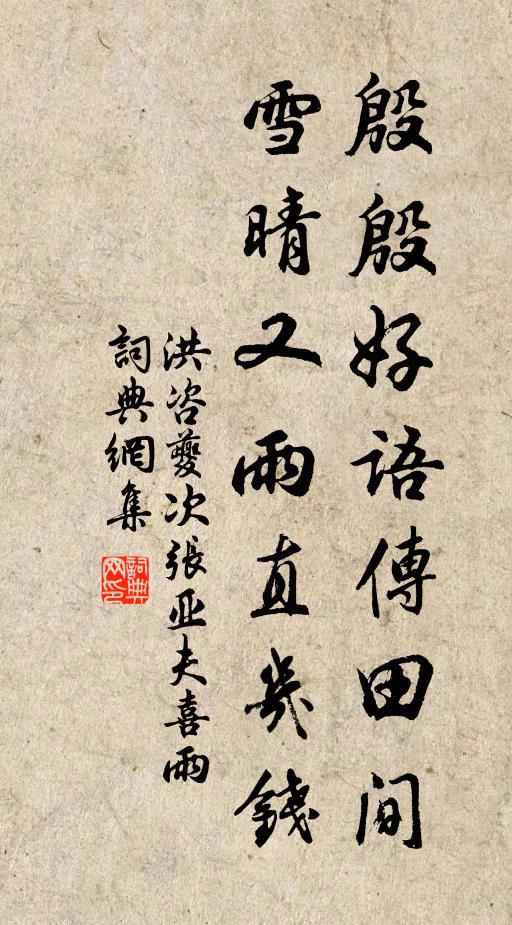 殷殷好語傳田間
雪晴又雨直幾錢
洪咨夔次張亚夫喜雨
詞典網集
詞典网印